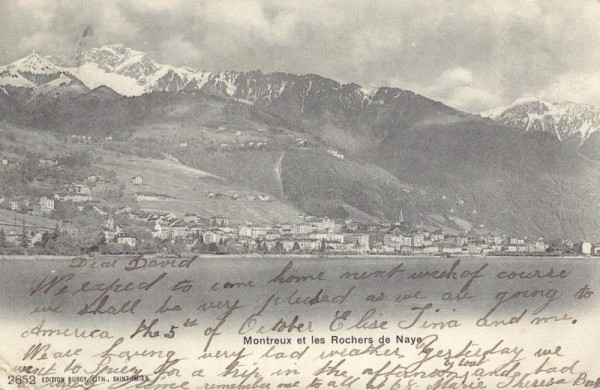 Dear David
We expect to come home next week of course
we shall be very pleased as we are going to
America the 5th of October Elise Tina and me.
Montreux et les Rochers de Naye
We are having very bad weather Yesterday we
went to for a trip in the afternoon and had
a boat
2652 EDITION BURGY, LITH., SAINT-IMIER
remember me to all at 68. Marie Theresa